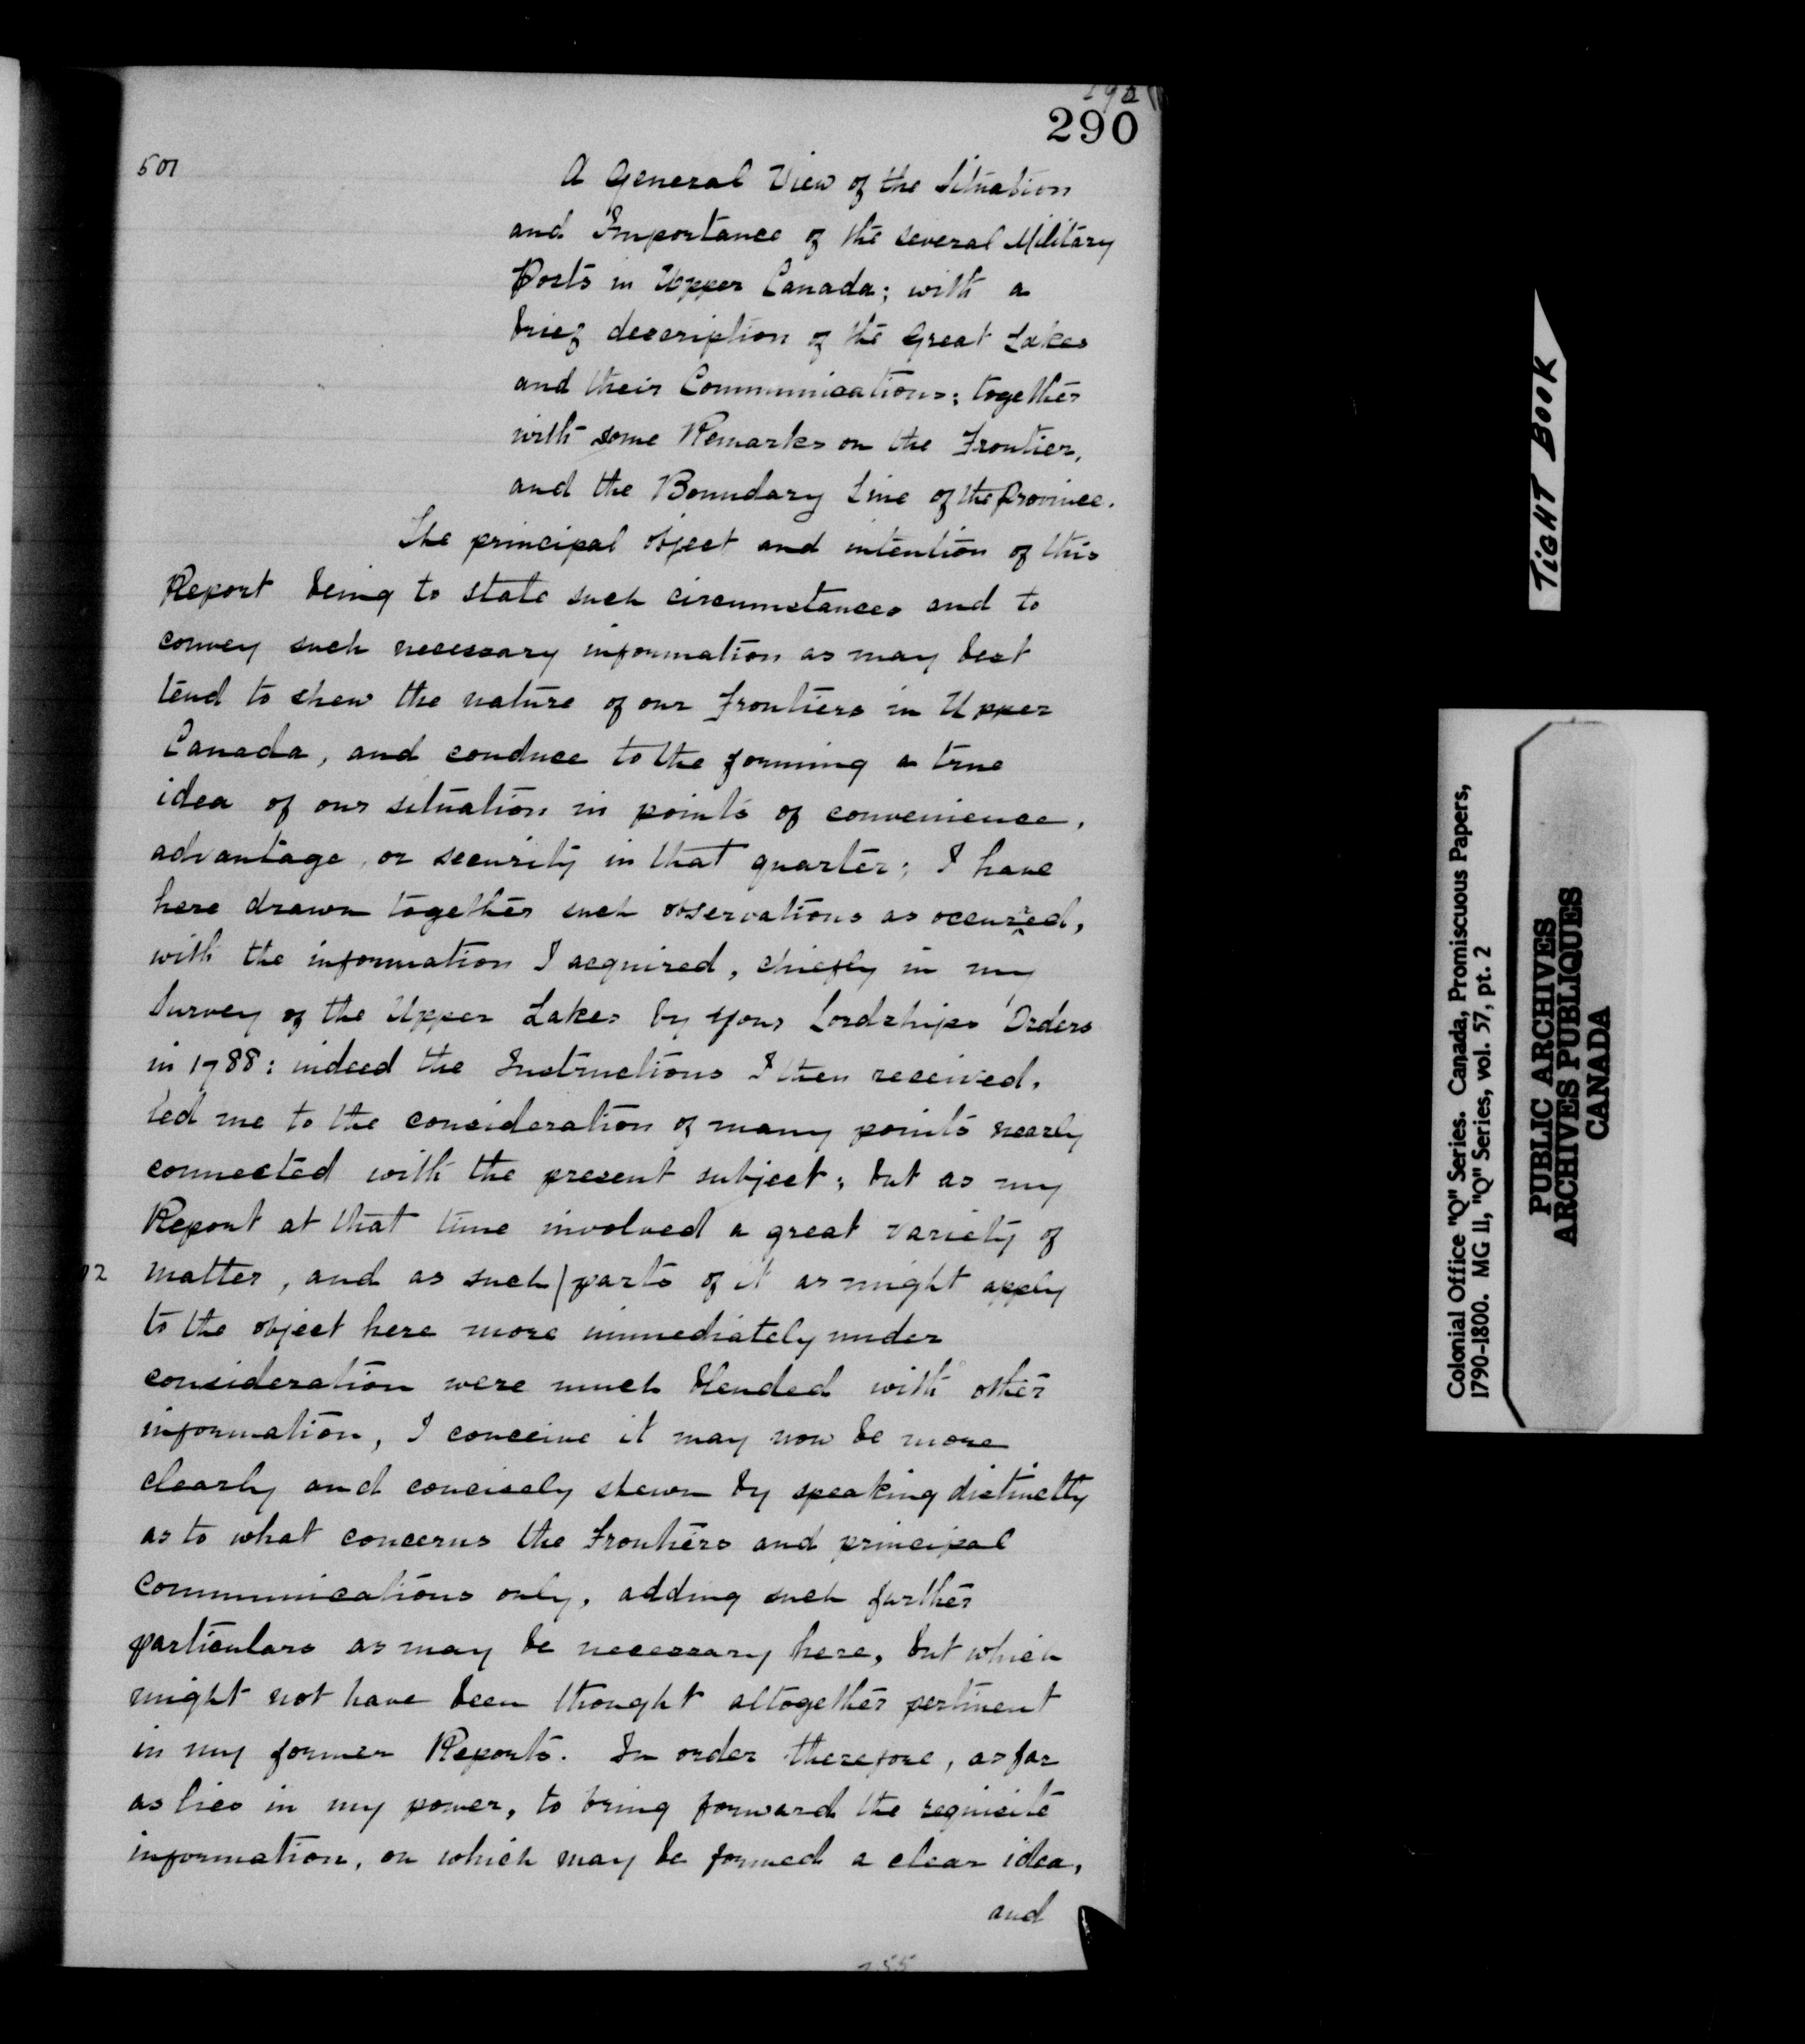 290
501
A General View of the Situation
and Importance of the several Military
Posts in Upper Canada; with a
brief description of the Great Lakes
and their Communications; together
with some Remarks on the Frontier,
and the Boundary Line of the Province.
The principal object and intention of this
Report being to state such circumstances and to
convey such necessary information as may best
tend to shew the nature of our Frontiers in Upper
Canada, and conduce to the forming a true
idea of our situation in points of convenience,
advantage, or security in that quarter; I have
here drawn together such observations as occurred,
with the information I acquired, chiefly in my
Survey of the Upper Lakes by your Lordships Orders
in 1788: indeed the Instructions I then received,
led me to the consideration of many points nearly
connected with the present subject; but as my
Report at that time involved a great variety of
matter, and as such | parts of it as might apply
to the object here more immediately under
consideration were much blended with other
information, I conceive it may now be more
clearly and concisely shewn by speaking distinctly
as to what concerns the Frontiers and principal
Communications only, adding such further
particulars as may be necessary here, but which
might not have been thought altogether pertinent
in my former Reports. In order therefore, as far
as lies in my power, to bring forward the requisite
information, on which may be formed a clear idea,
and
TIGHT BOOK
Colonial Office "Q" Series. Canada, Promiscuous Papers,
1790-1800. MG 11, "Q" Series, vol. 57, pt. 2
PUBLIC ARCHIVES
ARCHIVES PUBLIQUES
CANADA